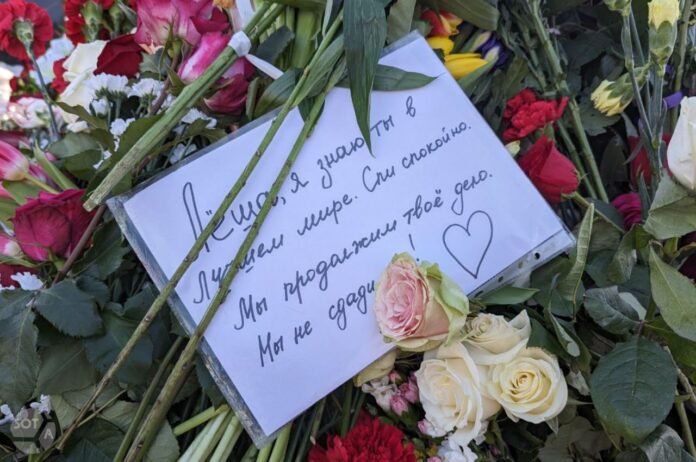 Лёша, я знаю ты в
лучшем мире. Спи спокойно.
Мы продолжим твоё дело.
Мы не сдади !
SOTA